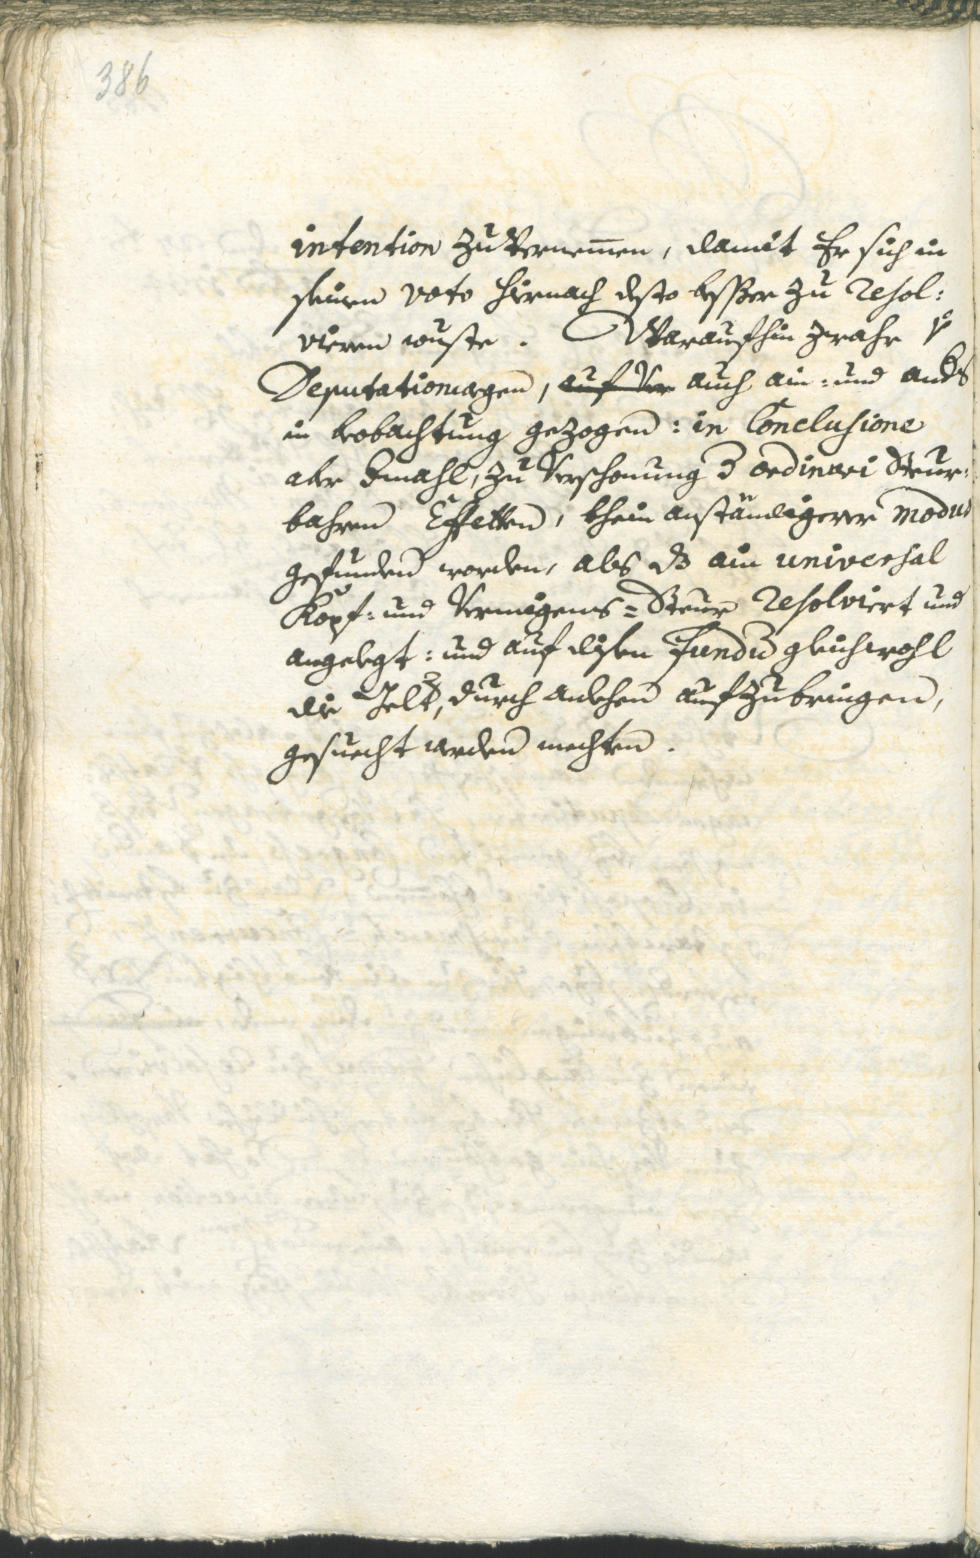 386
intention zu Vernemmen, damit Er sich in
seinem voto hernach desto besser zu resol:
vieren wuste. Waraufhin zwahr
Deputationwegen, auf der auch ain: und anders
in beobachtung gezogen: in Conclusione
aber damahl, zu Verschonung der ordinari Steur:
bahren Effecten, khein anständigerer modus
gefunden worden, als das ain universal
Kopf: und Vermögens=Steur resolviert und
angelegt: und auf disen Fundum gleichwohl
die Gelter, durch anlehen aufzubringen,
gesuecht werden mechten.